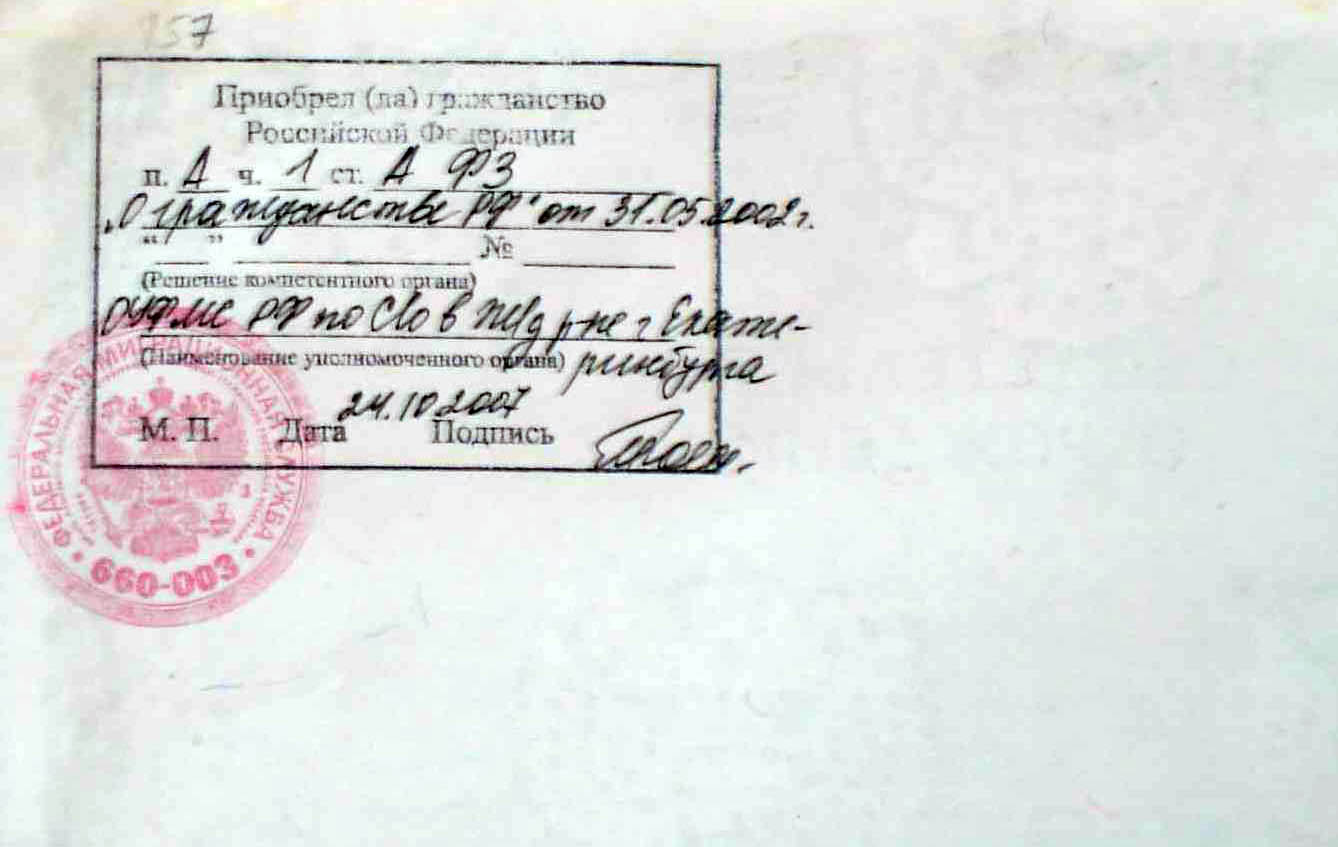 157
Приобрел (ла) гражданство
Российской Федерации
п. А ч. 1 ст. А ФЗ
„О гражданстве РФ" от 31.05.2002г.
“ ” №
(Решение компетентного органа)
ОУФМС РФ по СО в р-не г Екате-
(Наименование уполномоченного органа) ринбурга
24.10.2007
М. П. Дата Подпись
ФЕДЕРАЛЬНАЯ МИГРАЦИОННАЯ СЛУЖБА
660-003